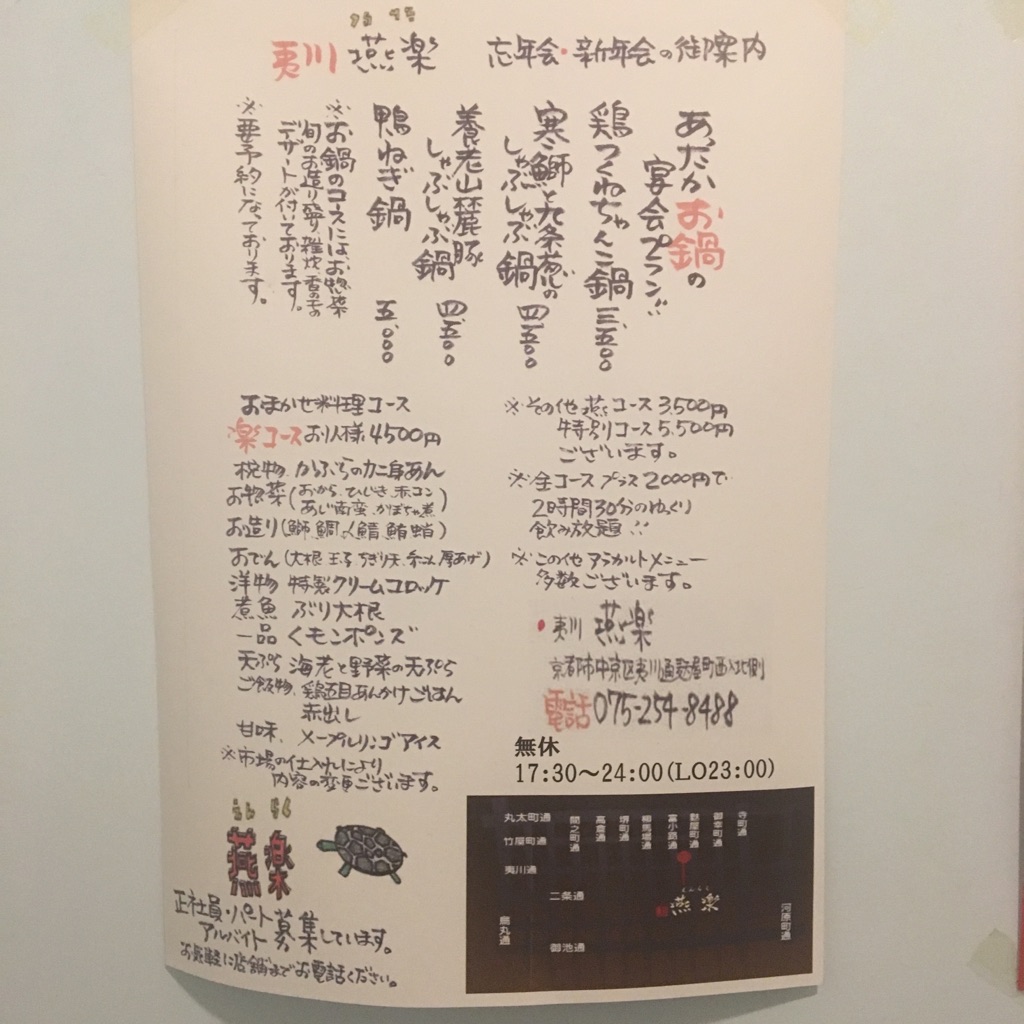 えん らく
夷川 燕楽 忘年会・新年会の御案内
あったかお鍋の
宴会プラン!!
鶏つくねちゃんこ鍋 三、五〇〇
寒鰤と九条葱の
しゃぶしゃぶ鍋 四、五〇〇
養老山麓豚
しゃぶしゃぶ鍋 四、五〇〇
鴨ねぎ鍋 五、〇〇〇
※お鍋のコースにはお惣菜
旬のお造り盛り、雑炊、香のもの
デザートが付いております。
※要予約になっております。
おまかせ料理コース
楽コースお1人様4500円
椀物、かぶらのカニ身あん
お惣菜(おから、ひじき、赤コン
あじ南蛮、かぼちゃ煮)
お造り(鰤、鯛、〆鯖、鮪、蛸)
おでん(大根 玉子 ちぎり天 糸こん 厚あげ)
洋物 特製クリームコロッケ
煮魚 ぶり大根
一品 くもンポンズ
天ぷら 海老と野菜の天ぷら
ご飯物、鶏五目あんかけごはん
赤出し
甘味、メープルリンゴアイス
※市場の仕入れにより
内容の変更ございます。
※その他燕コース3,500円
特別コース5,500円
ございます。
※全コースプラス2000円で
2時間30分のゆっくり
飲み放題!!
※この他アラカルトメニュー
多数ございます。
・夷川 燕楽
京都市中京区夷川通麩屋町西入ル北側
電話075-254-8488
無休
17:30〜24:00(LO23:00)
えん らく
燕楽
正社員・パート
アルバイト募集しています。
お気軽に店舗までお電話ください。
丸太町通
竹屋町通
夷川通
二条通
御池通
烏丸通
間之町通
高倉通
堺町通
柳馬場通
富小路通
麩屋町通
御幸町通
寺町通
河原町通
えんらく
燕楽